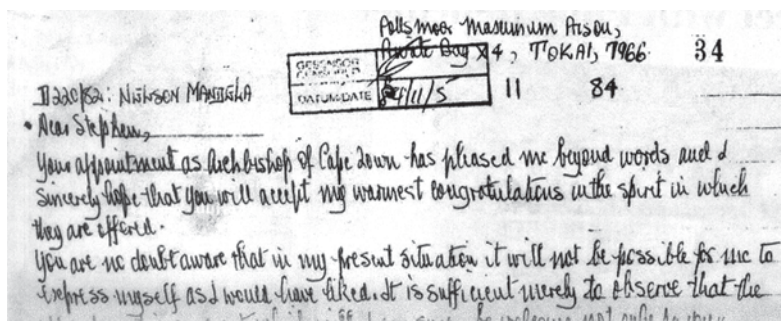 Pollsmoor Maximum Prison,
Private Bag X4, TOKAI, 7966. 34
DATUM/DATE 84/11/5 11 84
D220/82: NELSON MANDELA
Dear Stephen,
Your appointment as Archbishop of Cape Town has pleased me beyond words and I
sincerely hope that you will accept my warmest congratulations in the spirit in which
they are offered.
You are no doubt aware that in my present situation it will not be possible for me to
express myself as I would have liked. It is sufficient merely to observe that the